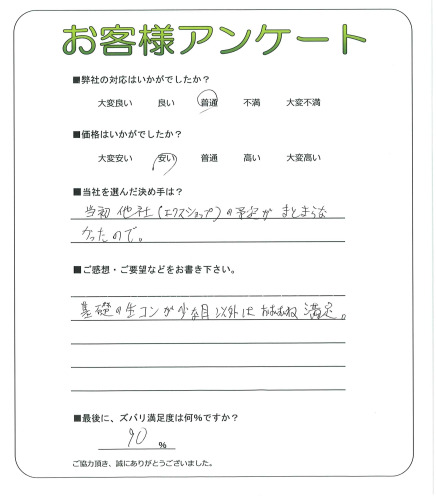 お客様アンケート
■弊社の対応はいかがでしたか？
大変良い　良い　普通　不満　大変不満
■価格はいかがでしたか？
大変安い　安い　普通　高い　大変高い
■当社を選んだ決め手は？
当初 他社(エクスショップ)の予定が まとまらな
かったので。
■ご感想・ご要望などをお書き下さい。
基礎の生コンが少な目以外は おおむね 満足。
■最後に、ズバリ満足度は何%ですか？
90 %
ご協力頂き、誠にありがとうございました。